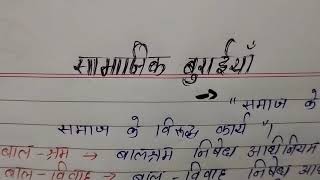 सामाजिक बुराईयाँ
→ "समाज के
समाज के विरुद्ध कार्य"
बाल-श्रम → बालश्रम निषेध अधिनियम
बाल-विवाह → बाल-विवाह निषेध